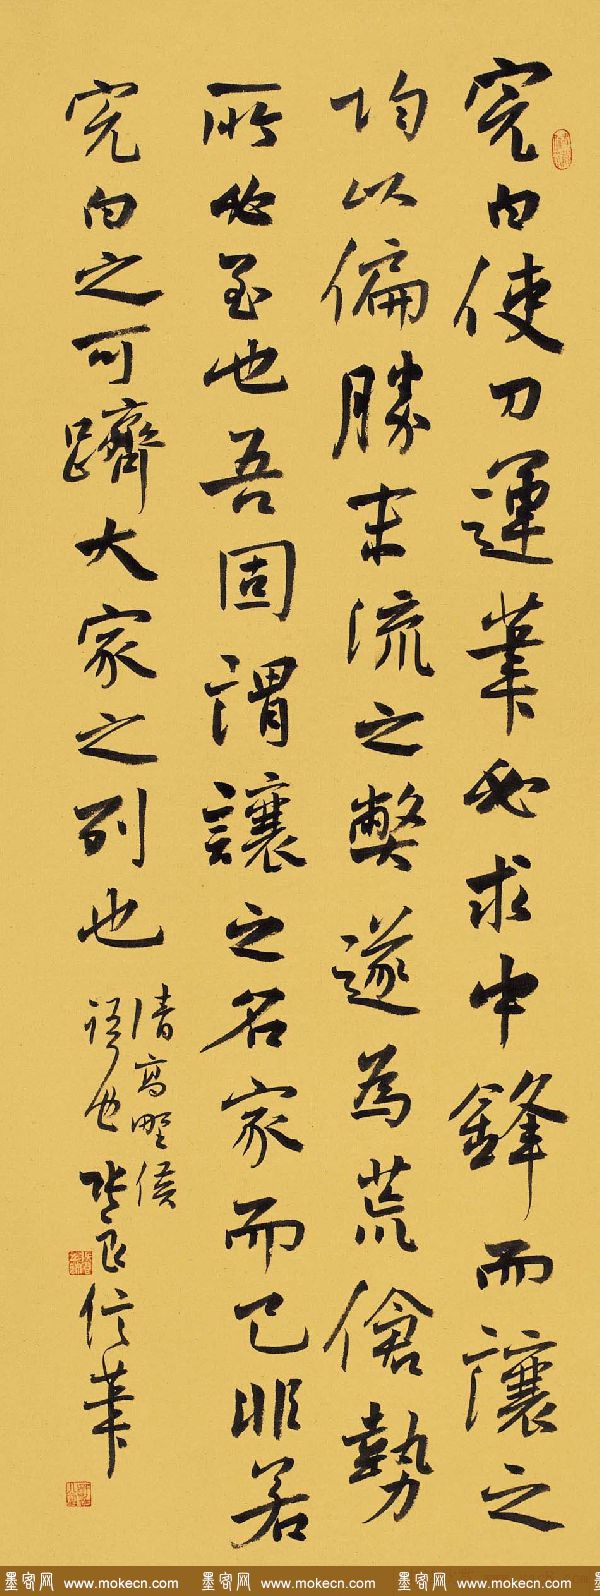 完白使刀運筆必求中鋒而讓之
均以偏勝末流之弊遂為荒傖勢
所必至也吾固謂讓之名家而已非若
完白之可躋大家之列也
清高野侯
語也 張良信筆
墨客网 www.mokecn.com 墨客网 www.mokecn.com 墨客网 www.mokecn.com